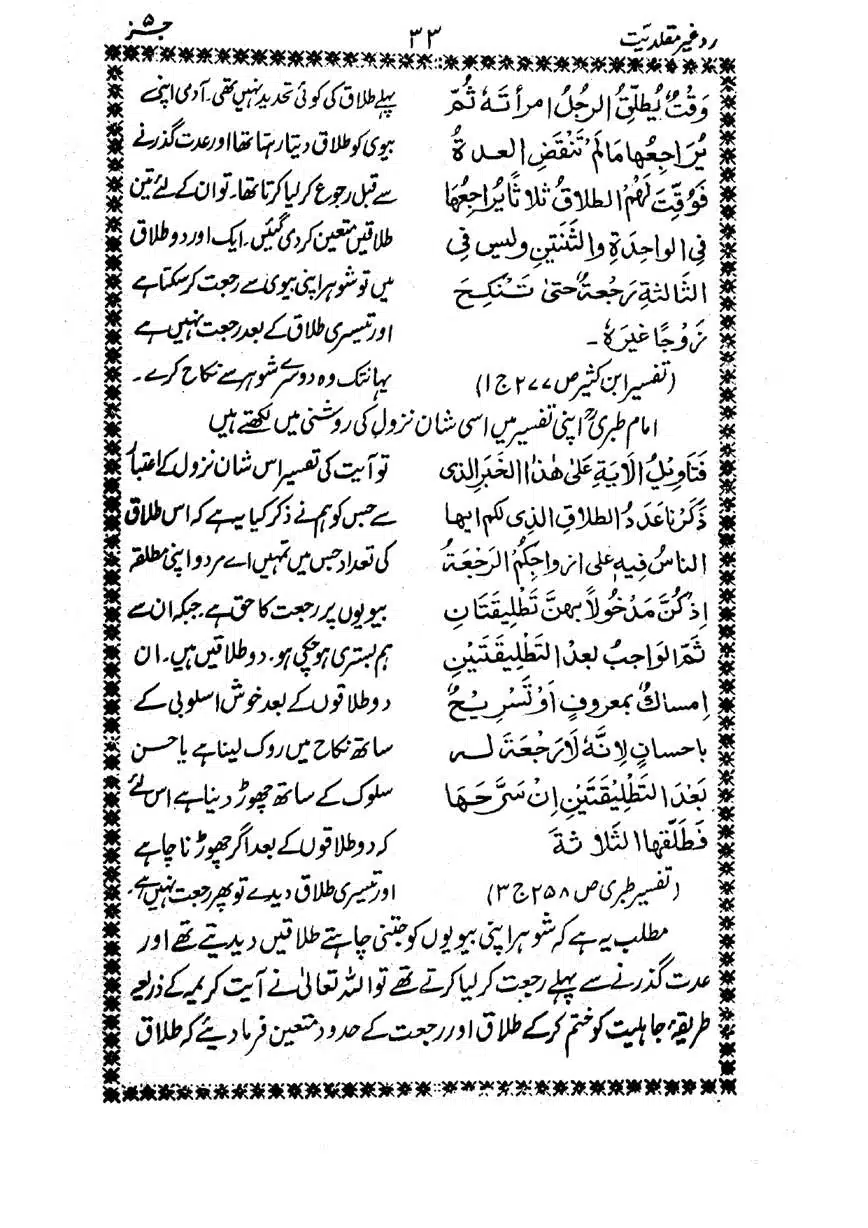 رد غیر مقلدیت ۳۳ جز ۵
وَقْتٌ یُطَلِّقُ الرجُلُ امرأتَهٗ ثُمَّ
یُرَاجِعُها مَالَمْ تَنْقَضِ العدةُ
فَوُقِّتَ لَهُمُ الطلاقُ ثلاثًا یُراجِعُهَا
فِی الواحِدَةِ والثِّنتَینِ ولیس فِی
الثَّالثةِ رَجْعَةٌ حتیٰ تَنْکِحَ
زَوْجًا غیرَهٗ۔
(تفسیر ابن کثیر ص ۲۷۷ ج ۱)
پہلے طلاق کی کوئی تحدید نہیں تھی۔ آدمی اپنے
بیوی کو طلاق دیتا رہتا تھا اور عدت گذرنے
سے قبل رجوع کر لیا کرتا تھا۔ تو ان کے لئے تین
طلاقیں متعین کر دی گئیں۔ ایک اور دو طلاق
میں تو شوہر اپنی بیوی سے رجعت کر سکتا ہے
اور تیسری طلاق کے بعد رجعت نہیں ہے
یہانتک وہ دوسرے شوہر سے نکاح کرے۔
امام طبریؒ اپنی تفسیر میں اسی شان نزول کی روشنی میں لکھتے ہیں
فَتَاوِیْلُ الْاٰیَةِ عَلیٰ ھٰذا الخَبَرِ الذی
ذَکَرْنَا عَدَدُ الطلاقِ الذِی لکم ایھا
الناسُ فیهِ علی ازواجِکُمُ الرَجْعَةُ
اِذْ کُنَّ مَدْخُولاً بِهِنَّ تَطْلِیْقَتَانِ
ثُمَّ الوَاجِبُ بعدَ التَطْلِیْقَتَیْنِ
اِمساكٌ بمعروفٍ اَوْ تَسْرِیْحٌ
باحسانٍ لِاِنَّهٗ لَا رَجْعَةَ لَـهٗ
بَعْدَ التَطْلِیْقَتَیْنِ اِنْ سَرَّحَهَا
فَطَلَّقَهَا الثَّلَاثَةَ
(تفسیر طبری ص ۲۵۸ ج ۳)
تو آیت کی تفسیر اس شان نزول کے اعتبار
سے جس کو ہم نے ذکر کیا یہ ہے کہ اس طلاق
کی تعداد جس میں تمہیں اے مردو اپنی مطلقہ
بیویوں پر رجعت کا حق ہے جبکہ ان سے
ہم بستری ہو چکی ہو۔ دو طلاقیں ہیں۔ ان
دو طلاقوں کے بعد خوش اسلوبی کے
ساتھ نکاح میں روک لینا ہے یا حسن
سلوک کے ساتھ چھوڑ دینا ہے اس لئے
کہ دو طلاقوں کے بعد اگر چھوڑنا چاہے
اور تیسری طلاق دیدے تو پھر رجعت نہیں ہے۔
مطلب یہ ہے کہ شوہر اپنی بیویوں کو جتنی چاہتے طلاقیں دیدیتے تھے اور
عدت گذرنے سے پہلے رجعت کر لیا کرتے تھے تو اللہ تعالیٰ نے آیت کریمہ کے ذریعے
طریقۂ جاہلیت کو ختم کر کے طلاق اور رجعت کے حدود متعین فرما دیئے کہ طلاق